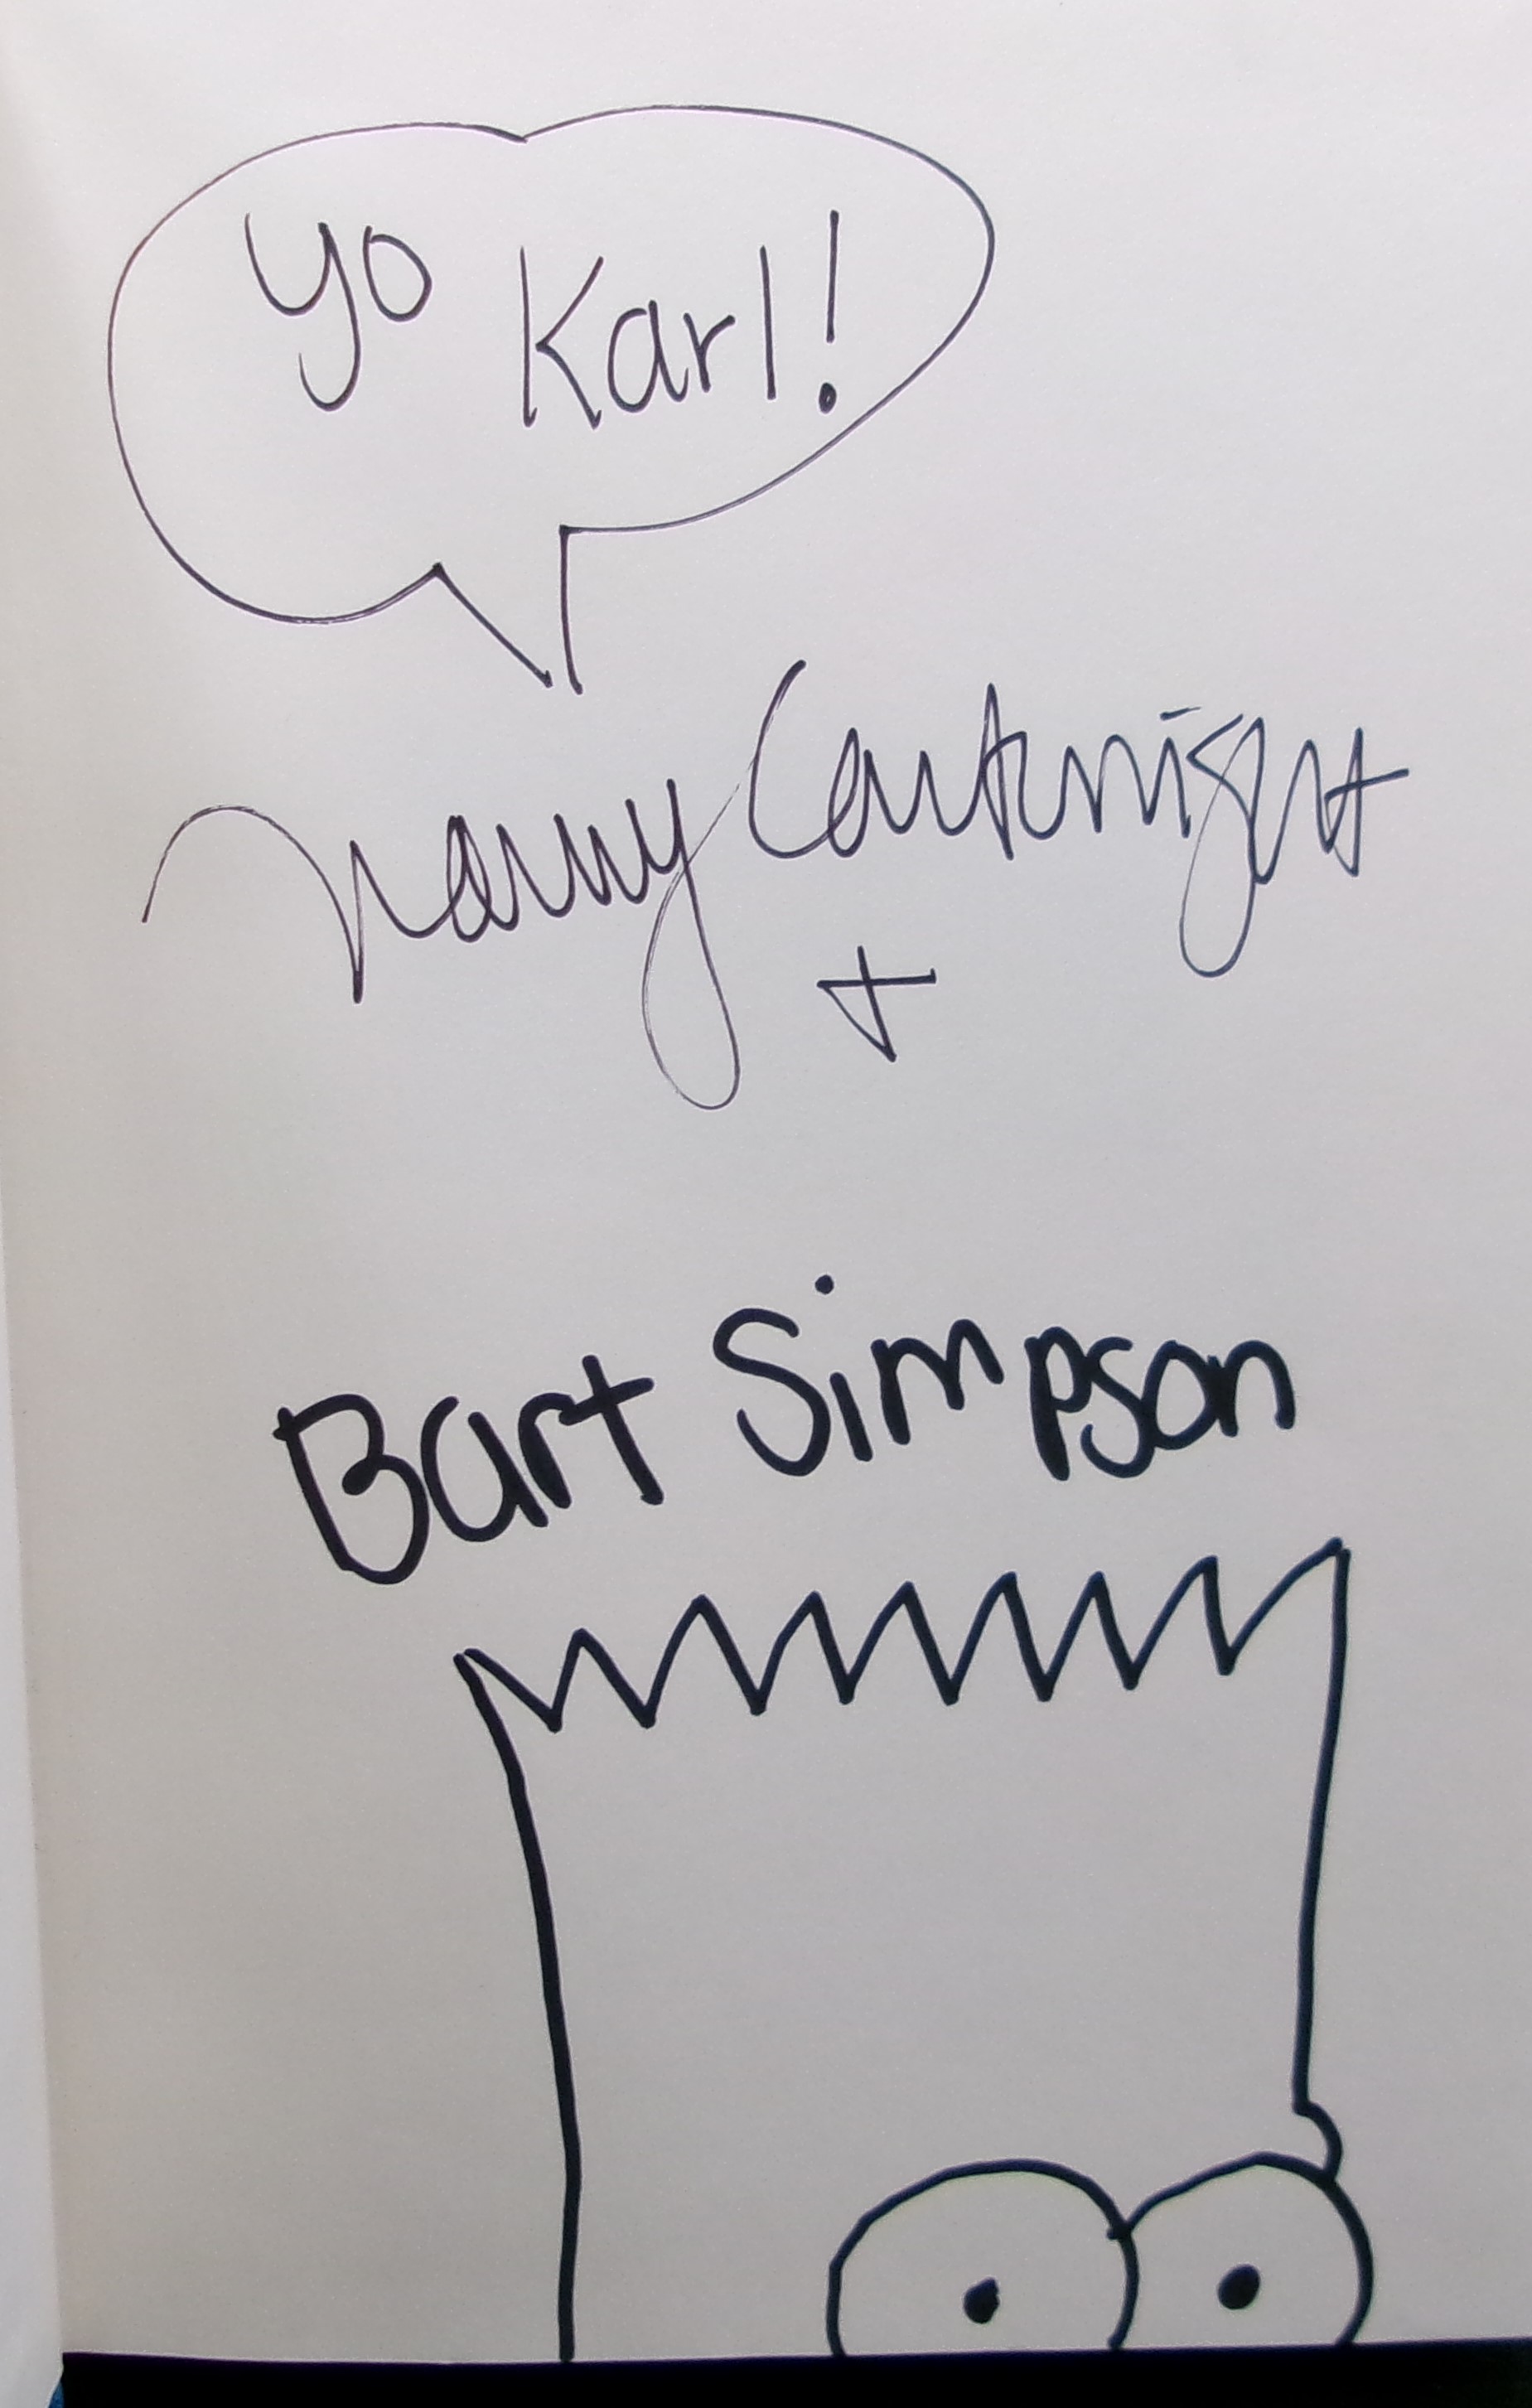 yo Karl!
Nancy Cartwright
+
Bart Simpson